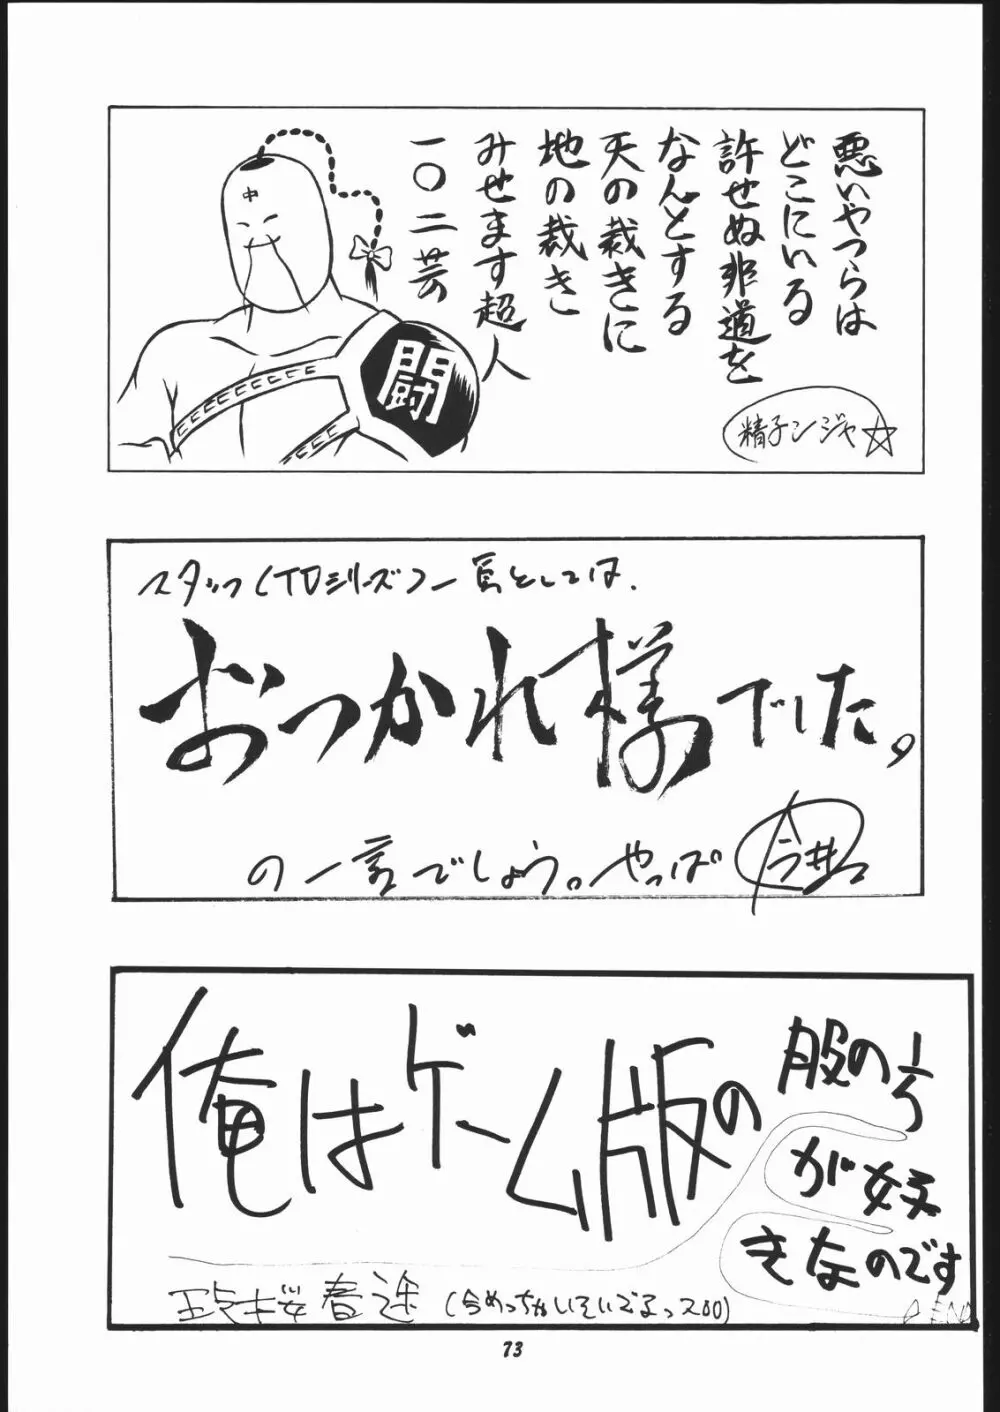 悪いやつらは
どこにいる
許せぬ非道を
なんとする
天の裁きに
地の裁き
みせます超人
一〇二芸
中
闘
精子ンジャ☆
スタッフ(TDシリーズ)一員としては、
おつかれ様でした。
の一言でしょう。やっぱ
今井
俺はゲーム版の
服の方
が好
きなのです
春途(今めっちゃいそいでるっスOO)
END
73